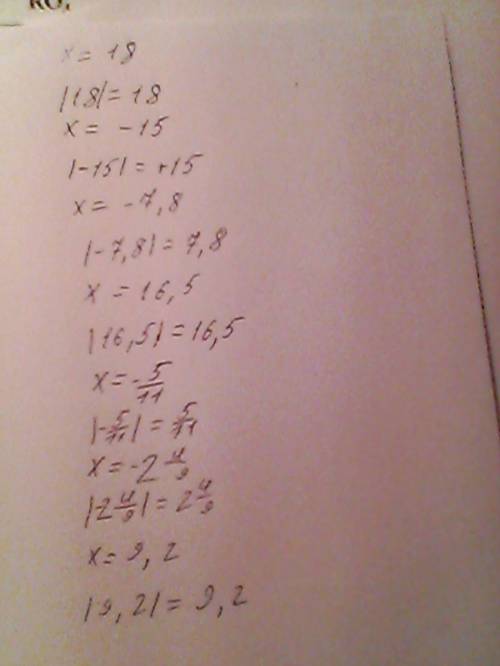 RO₄
x = 18
|18| = 18
x = -15
|-15| = +15
x = -7,8
|-7,8| = 7,8
x = 16,5
|16,5| = 16,5
x = -5/11
|-5/11| = 5/11
x = -2 4/9
|-2 4/9| = 2 4/9
x = 9,2
|9,2| = 9,2